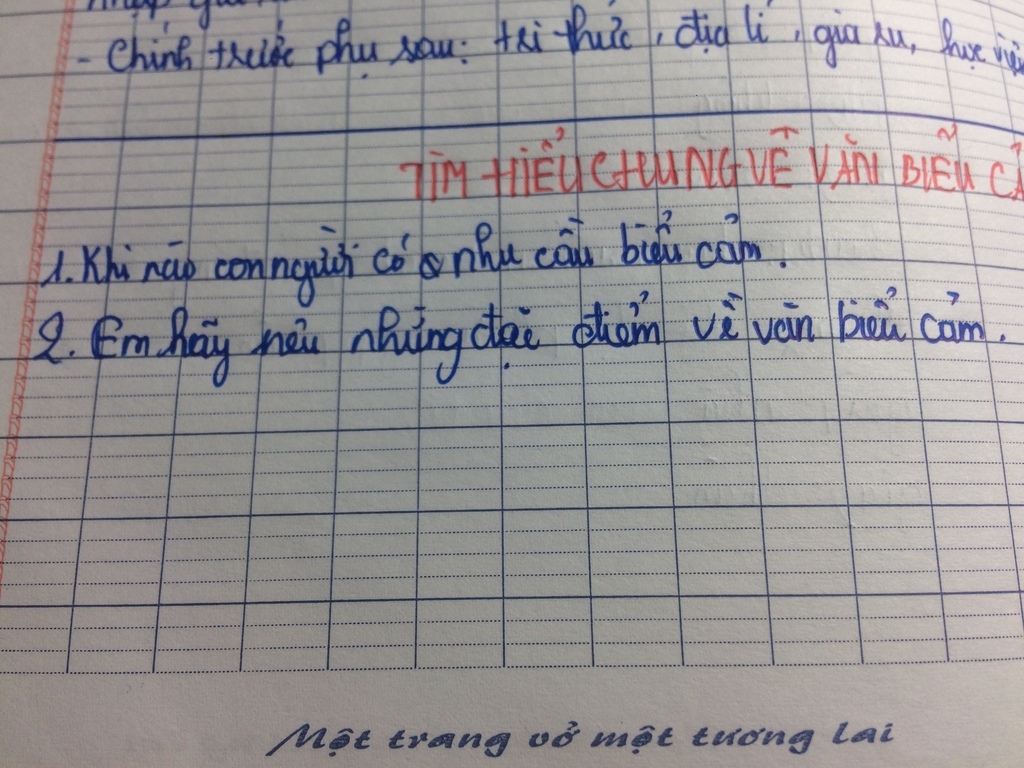 - Chính trước phụ sau: tri thức, địa lí, gia sư, học viên
TÌM HIỂU CHUNG VỀ VĂN BIỂU CẢ
1. Khi nào con người có nhu cầu biểu cảm.
2. Em hãy nêu những đặc điểm về văn biểu cảm.
Một trang vở một tương lai